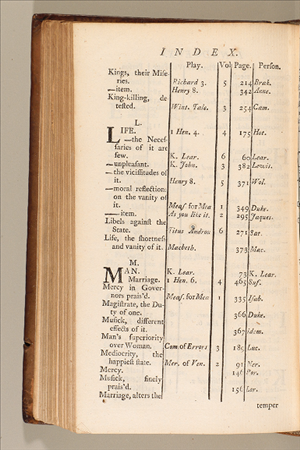 INDEX.
Play. Vol. Page. Person.
Kings, their Mise-
ries. Richard 3. 5 214 Brak.
—item. Henry 8. 342 Anne.
King-killing, de
tested. Wint. Tale. 3 254 Cam.
L.
LIFE. 1 Hen. 4. 4 175 Hot.
—the Neces-
saries of it are
few. K. Lear. 6 60 Lear.
—unpleasant. K. John. 3 382 Lewis.
—the vicissitudes of
it. Henry 8. 5 371 Wol.
—moral reflections
on the vanity of
it. Meas. for Mea 1 349 Duke.
—item. As you like it. 2 295 Jaques.
Libels against the
State. Titus Andron 6 271 Sat.
Life, the shortness
and vanity of it. Macbeth. 373 Mac.
M.
MAN. K. Lear. 73 K. Lear.
Marriage. 1 Hen. 6. 4 463 Suf.
Mercy in Gover-
nors prais'd. Meas. for Mea 1 335 Isab.
Magistrate, the Du-
ty of one. 366 Duke.
Musick, different
effects of it. 367 idem.
Man's superiority
over Woman. Com. of Errors 3 180 Luc.
Mediocrity, the
happiest state. Mer. of Ven. 2 91 Ner.
Mercy. 146 Por.
Musick, finely
prais'd. 150 Lor.
Marriage, alters the
temper